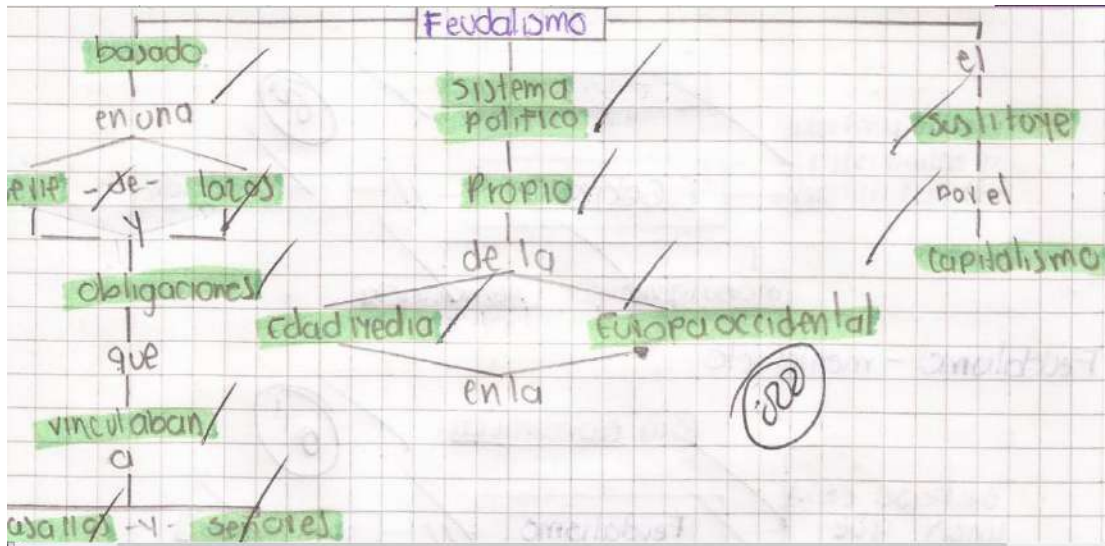 Feudalismo
basado
en una
serie - de - lazos
y
obligaciones
que
vinculaban
a
vasallos - y - señores
sistema
politico
Propio
de la
Edad Media
Europa occidental
en la
el
sustituye
por el
capitalismo